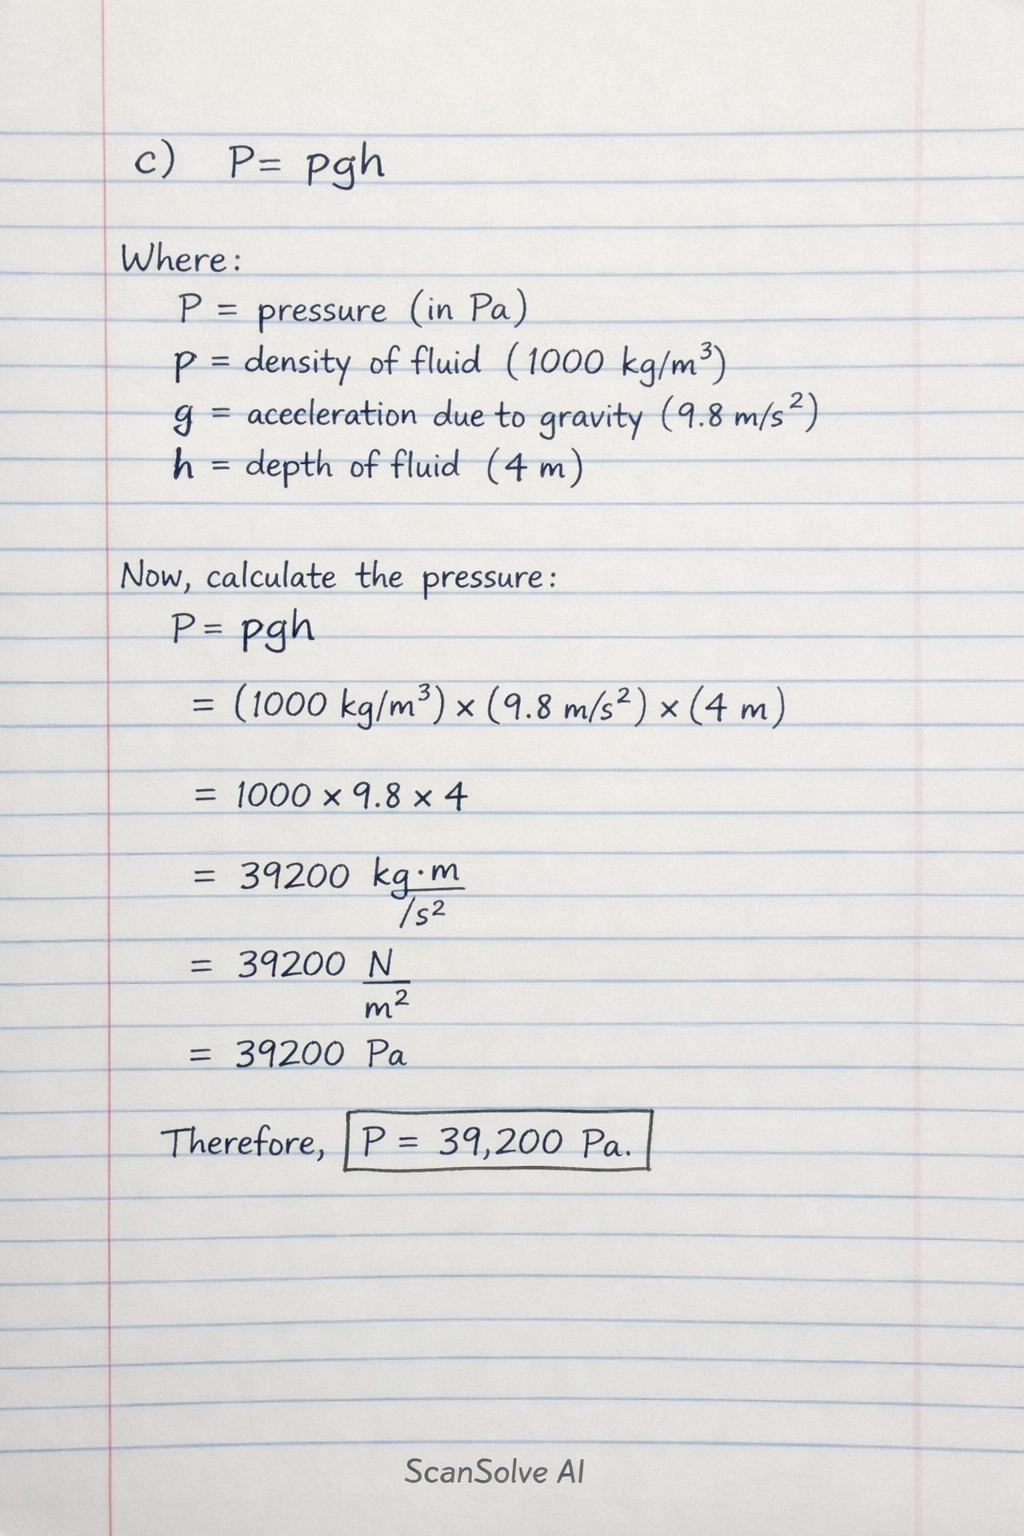 c) P= pgh
Where:
P = pressure (in Pa)
p = density of fluid (1000 kg/m³)
g = acecleration due to gravity (9.8 m/s²)
h = depth of fluid (4 m)
Now, calculate the pressure:
P = pgh
= (1000 kg/m³) × (9.8 m/s²) × (4 m)
= 1000 × 9.8 × 4
= 39200 kg·m
/s²
= 39200 N
m²
= 39200 Pa
Therefore, P = 39,200 Pa.
ScanSolve AI